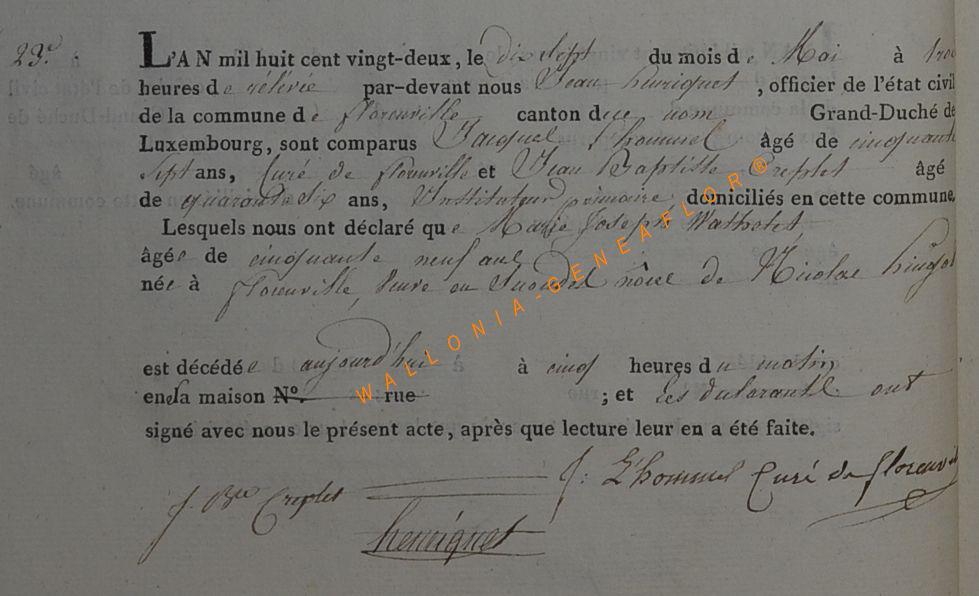 23e. L'AN mil huit cent vingt-deux, le dix sept du mois de Mai à trois
heures de rélévée par-devant nous Jean henriquet, officier de l'état civil
de la commune de florenville canton de ce nom Grand-Duché de
Luxembourg, sont comparus Jacques l'hommel âgé de cinquante
sept ans, Curé de florenville et Jean Baptiste Creplet âgé
de quarante six ans, Instituteur primaire, domiciliés en cette commune.
Lesquels nous ont déclaré que Marie Joseph Wathelet,
âgée de cinquante neuf ans
née à florenville, Veuve en noces de Nicolas
est décédée aujourd'hui à à cinq heures du matin
en sa maison N°. rue ; et les déclarants ont
signé avec nous le présent acte, après que lecture leur en a été faite.
J. Bte Creplet J: L'hommel Curé de florenville
henriquet
WALLONIA-GENEAFLOR®